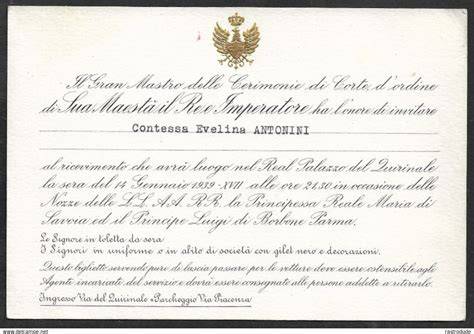 Il Gran Mastro delle Cerimonie di Corte d'ordine
di Sua Maestà il Re e Imperatore ha l'onore di invitare
Contessa Evelina ANTONINI
al ricevimento che avrà luogo nel Real Palazzo del Quirinale
la sera del 14 Gennaio 1939-XVII alle ore 21,30 in occasione delle
Nozze delle LL. AA. RR. la Principessa Reale Maria di
Savoia ed il Principe Luigi di Borbone Parma.
Le Signore in toletta da sera
I Signori in uniforme o in abito di società con gilet nero e decorazioni.
Questo biglietto servendo pure di lascia passare per le vetture deve essere ostensibile agli
Agenti incaricati del servizio e dovrà essere consegnato alle persone addette a ritirarlo.
Ingresso Via del Quirinale e Parcheggio Via Piacenza